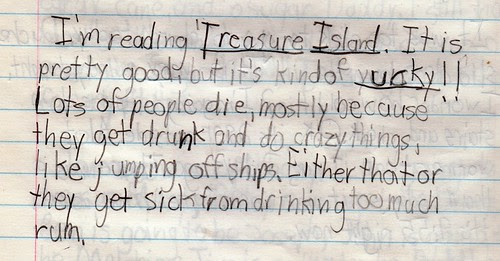 I'm reading Treasure Island. It is
pretty good, but it's kind of yucky!!
Lots of people die, mostly because
they get drunk and do crazy things,
like jumping off ships. Either that or
they get sick from drinking too much
rum.